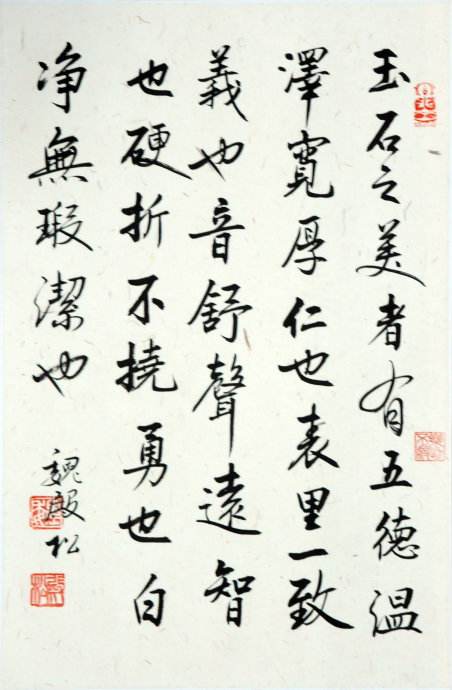 玉石之美者有五德温
澤寬厚仁也表里一致
義也音舒聲遠智
也硬折不撓勇也白
净無瑕潔也
魏殿松